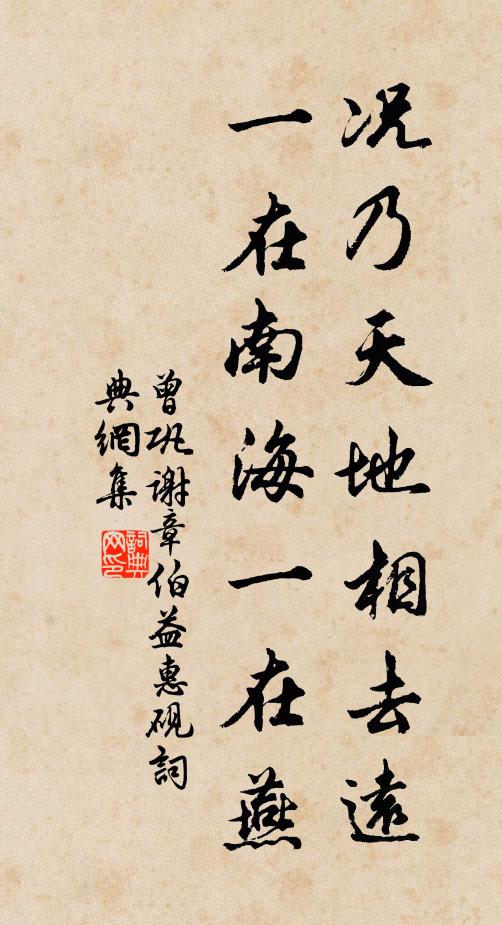 况乃天地相去遠
一在南海一在燕
曾巩谢章伯益惠砚詞
典網集
詞典
网印